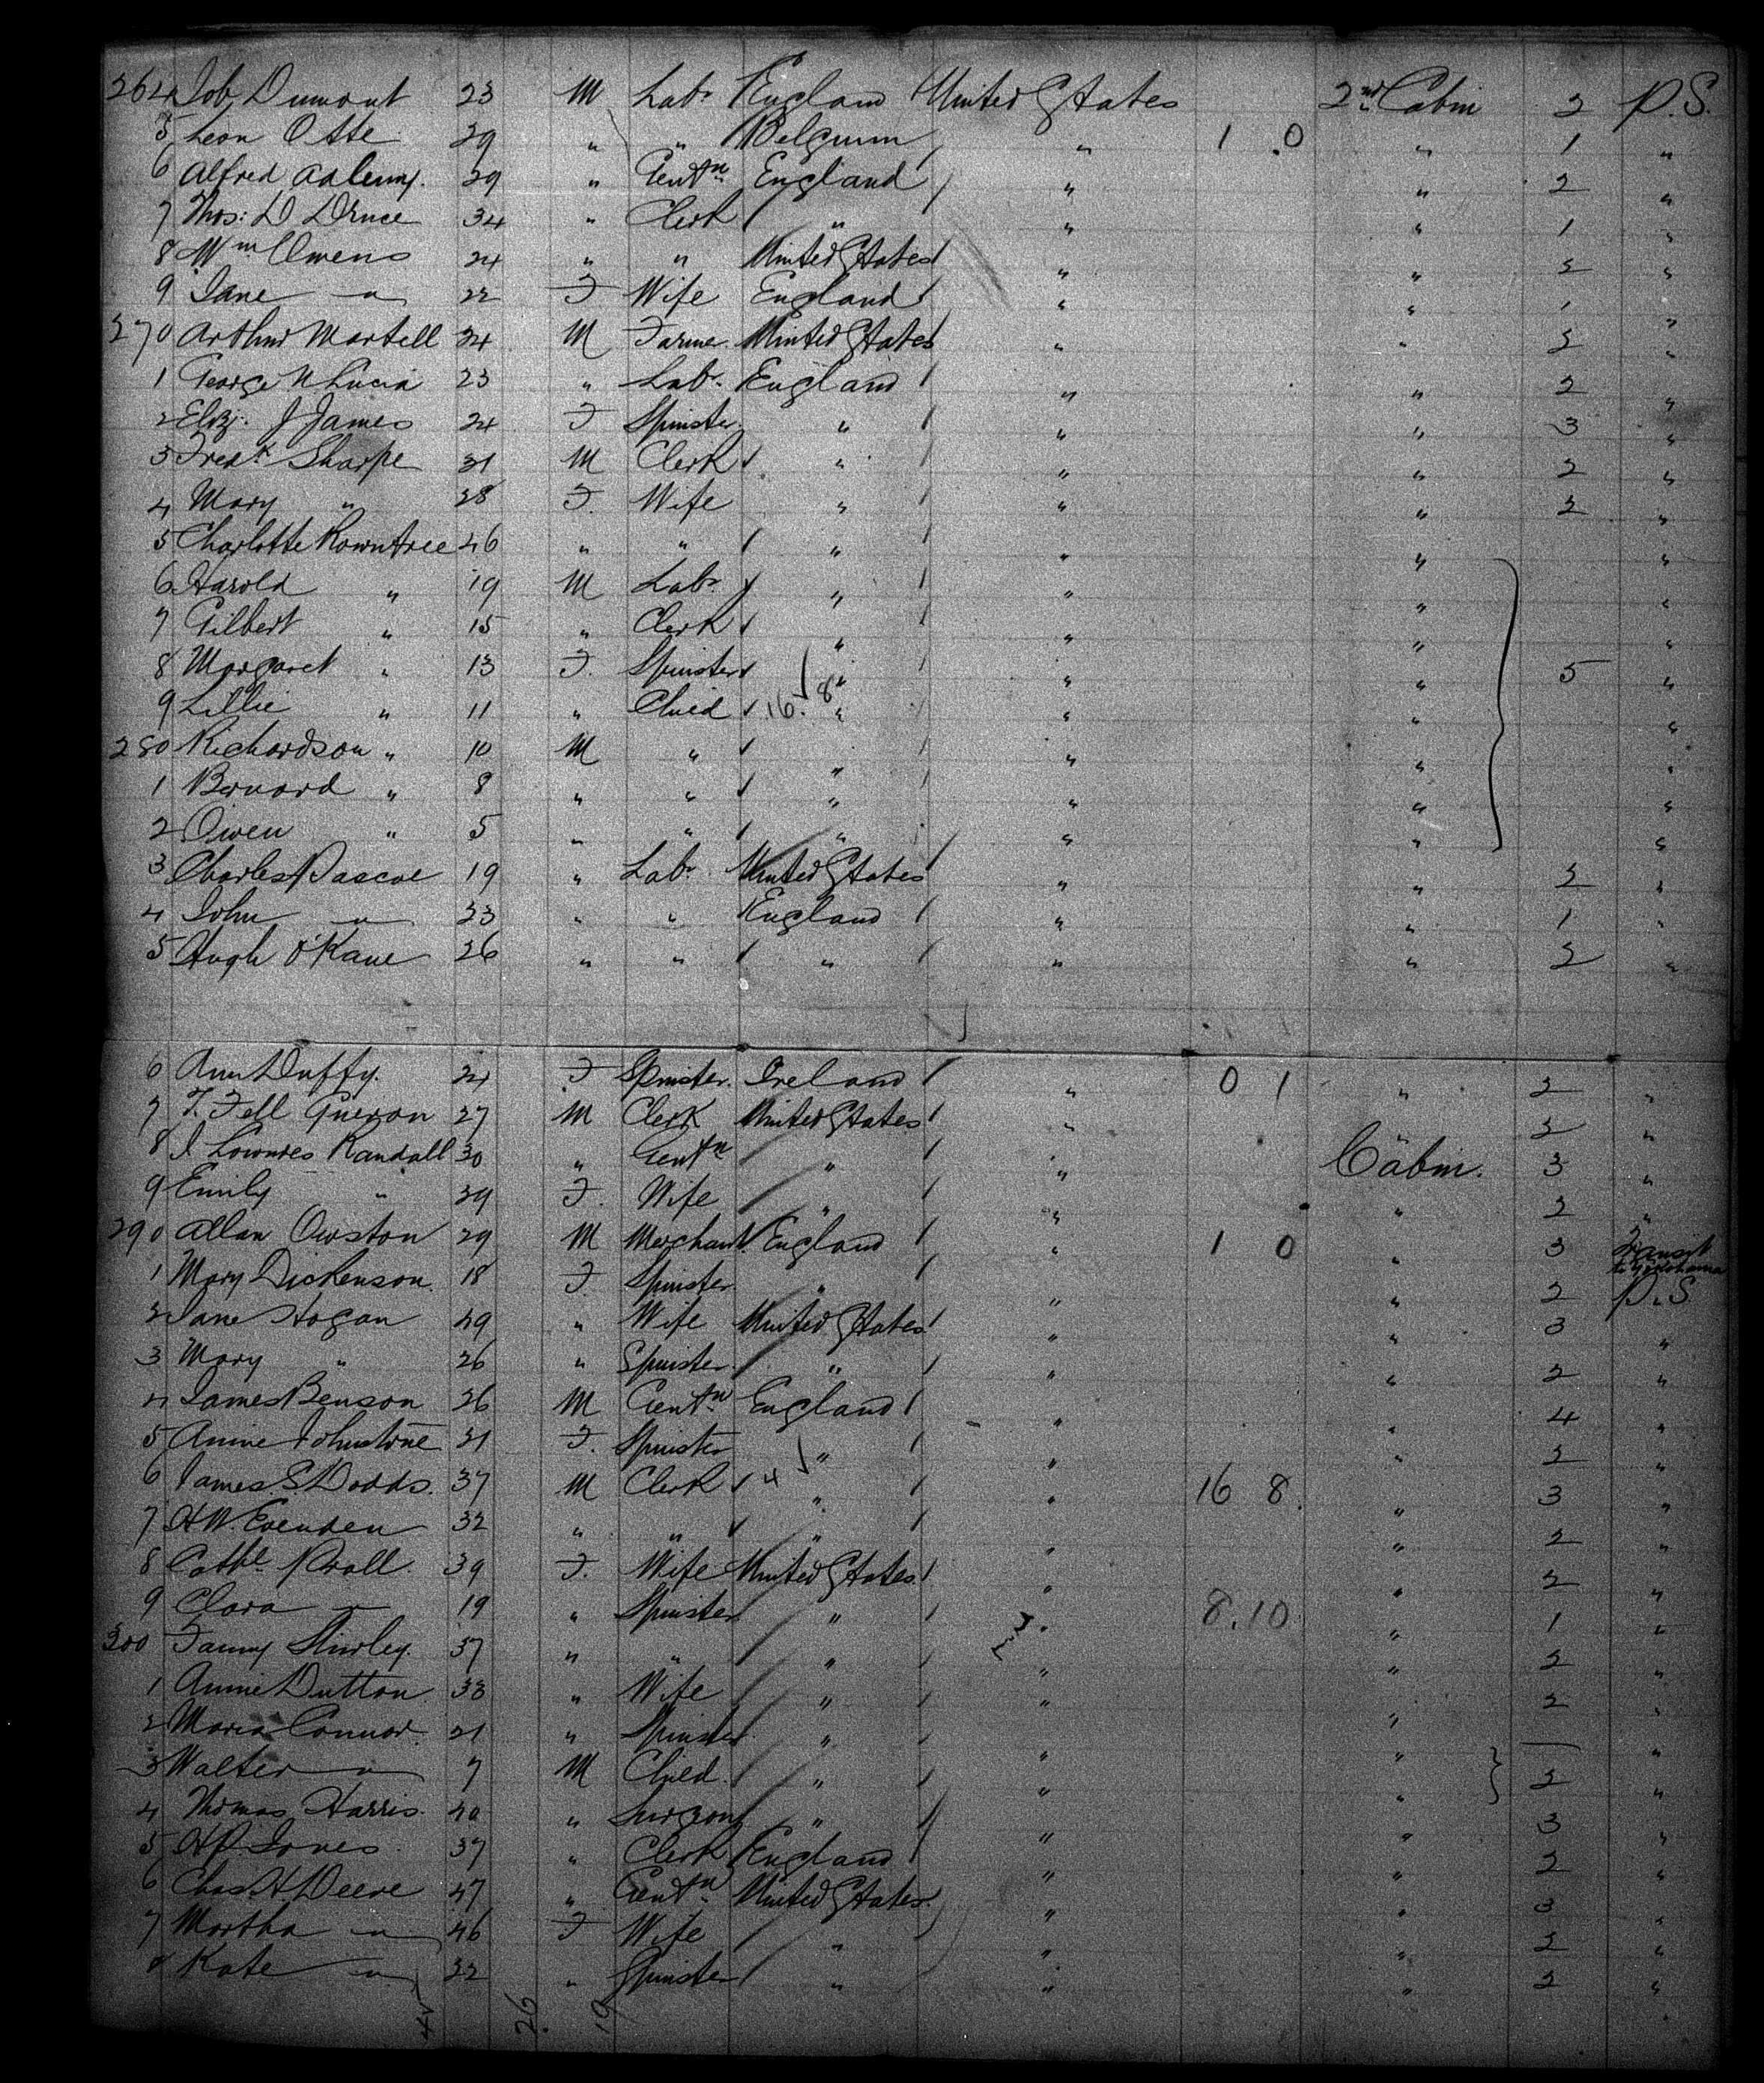 264 Job Dumont 23 M Labr England United States 2nd Cabin 2 P.S.
5 Leon Otte 29 " " Belgium " 1 0 " 1 "
6 Alfred 29 " Gentn England " " 2 "
7 Thos: D Druce 34 " Clerk " " " 1 "
8 Wm Owens 24 " " United States " " 2 "
9 Jane " 22 F Wife England " " 1 "
270 Arthur Martell 24 M Farmer United States " " 2 "
1 George N Lucia 23 " Labr England " " 2 "
2 Eliz. J James 24 F Spinster " " " 3 "
3 Fredk Sharpe 31 M Clerk " " " 2 "
4 Mary " 28 F. Wife " " " 2 "
5 Charlotte Rowntree 46 " " " " " "
6 Harold " 19 M Labr " " " "
7 Gilbert " 15 " Clerk " " " "
8 Margaret " 13 F. Spinster " " " 5 "
9 Lillie " 11 " Child 16. 8 " " " "
280 Richardson " 10 M " " " " "
1 Bernard " 8 " " " " " "
2 Owen " 5 " " " " " "
3 Charles Pascoe 19 " Labr United States " " 2 "
4 John " 23 " " England " " 1 "
5 Hugh O'Kane 26 " " " " " 2 "
6 Ann Duffy. 21 F Spinster. Ireland " 0 1 " 2 "
7 F. Fell 27 M Clerk United States " 2 "
8 J. Lowndes Randall 30 " Gentn " " Cabin. 3 "
9 Emily " 29 F. Wife " " " 2 "
290 Allan Owston 29 M Merchant England " 1 0 " 3 Transit to Yokohama
1 Mary Dickenson. 18 F Spinster " " " 2 P.S.
2 Jane Hogan 49 " Wife United States " " 3 "
3 Mary " 26 " Spinster. " " " 2 "
4 James Benson 26 M Gentn England " " 4 "
5 Annie Johnstone 31 F. Spinster " " " 2 "
6 James S. Dodds. 37 M Clerk 4 " " 16 8. " 3 "
7 H W. Evenden 32 " " " " " 2 "
8 Cathe Prall. 39 F. Wife United States " " 2 "
9 Clara " 19 " Spinster " " 8.10 " 1 "
300 Fanny Shirley. 37 " " " " " 2 "
1 Annie Dutton. 33 " Wife " " " 2 "
2 Maria Connor. 21 " Spinster " " " "
3 Walter " 7 M Child. " " " 2 "
4 Thomas Harris. 40 " Surgeon " " " 3 "
5 H P Jones 37 " Clerk England " " 2 "
6 Chas. H. Deere 47 " Gentn United States. " " 3 "
7 Martha " 46 F Wife " " " 2 "
8 Kate " 22 " Spinster " " " 2 "
26. 19